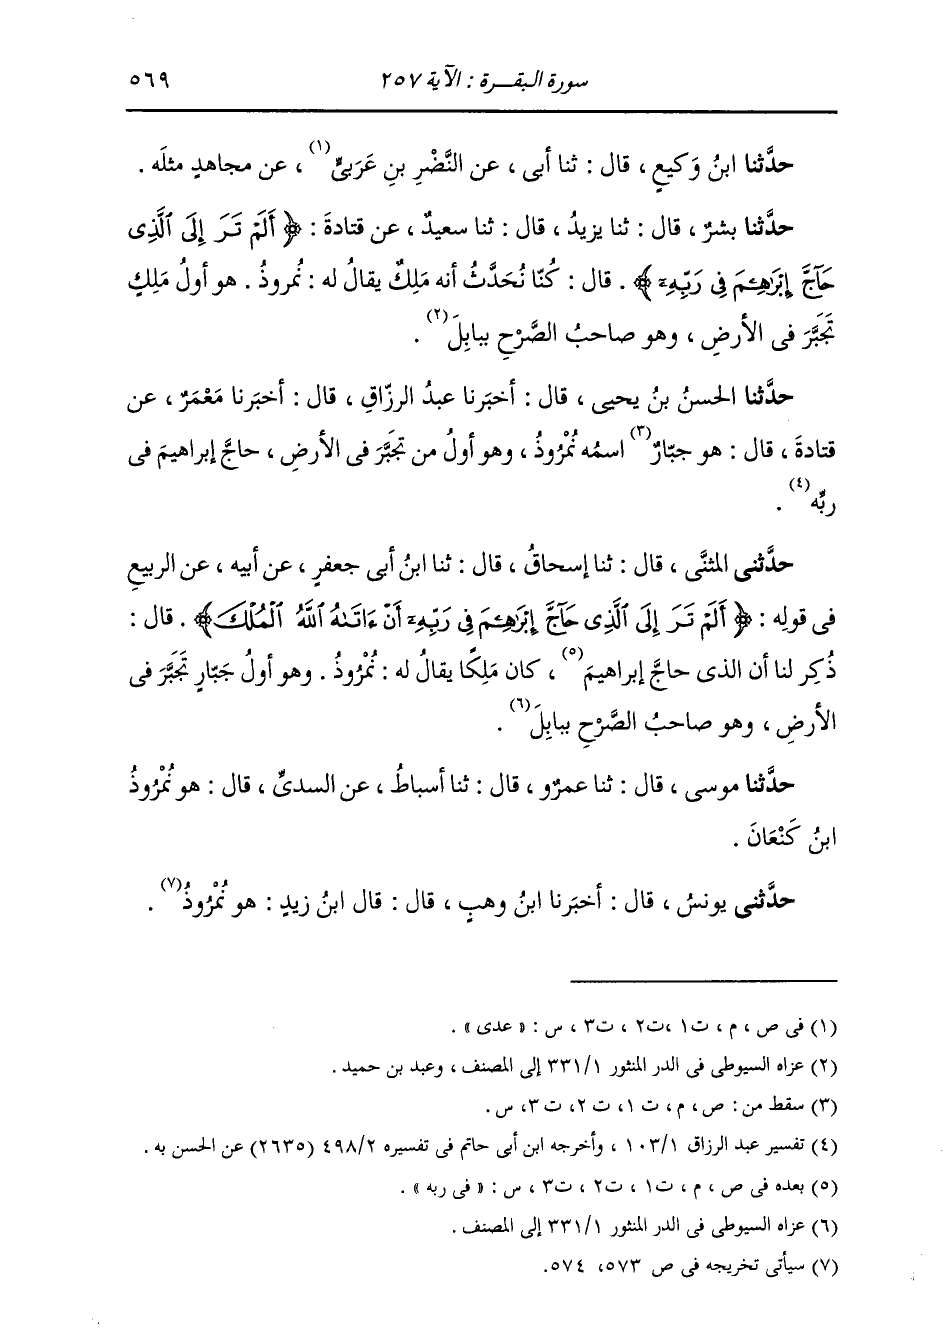 سورة البقـرة : الآية ٢٥٧ ٥٦٩
حدَّثنا ابنُ وَكيعٍ ، قال : ثنا أبى ، عن النَّضْرِ بنِ عَرَبىٍّ(١) ، عن مجاهدٍ مثلَه .
حدَّثنا بشرٌ ، قال : ثنا يزيدُ ، قال : ثنا سعيدٌ ، عن قتادةَ : ﴿ أَلَمْ تَرَ إِلَى ٱلَّذِى
حَآجَّ إِبْرَٰهِـۧمَ فِى رَبِّهِۦٓ ﴾ . قال : كُنّا نُحَدَّثُ أنه مَلِكٌ يقالُ له : نُمروذُ . هو أولُ مَلِكٍ
تَجَبَّرَ فى الأرضِ ، وهو صاحبُ الصَّرْحِ ببابِلَ(٢) .
حدَّثنا الحسنُ بنُ يحيى ، قال : أخبَرنا عبدُ الرزّاقِ ، قال : أخبَرنا مَعْمَرٌ ، عن
قتادةَ ، قال : هو جبّارٌ(٣) اسمُه نُمْرُوذُ ، وهو أولُ من تجَبَّرَ فى الأرضِ ، حاجَّ إبراهيمَ فى
ربِّه(٤) .
حدَّثنى المثنَّى ، قال : ثنا إسحاقُ ، قال : ثنا ابنُ أبى جعفرٍ ، عن أبيه ، عن الربيعِ
فى قولِه : ﴿ أَلَمْ تَرَ إِلَى ٱلَّذِى حَآجَّ إِبْرَٰهِـۧمَ فِى رَبِّهِۦٓ أَنْ ءَاتَىٰهُ ٱللَّهُ ٱلْمُلْكَ ﴾ . قال :
ذُكِر لنا أن الذى حاجَّ إبراهيمَ(٥) ، كان مَلِكًا يقالُ له : نُمْرُوذُ . وهو أولُ جَبّارٍ تَجَبَّرَ فى
الأرضِ ، وهو صاحبُ الصَّرْحِ ببابِلَ(٦) .
حدَّثنا موسى ، قال : ثنا عمرٌو ، قال : ثنا أسباطُ ، عن السدىِّ ، قال : هو نُمْرُوذُ
ابنُ كَنْعَانَ .
حدَّثنى يونسُ ، قال : أخبَرنا ابنُ وهبٍ ، قال : قال ابنُ زيدٍ : هو نُمْرُوذُ(٧) .
(١) فى ص ، م ، ت١ ،ت٢ ، ت٣ ، س : « عدى » .
(٢) عزاه السيوطى فى الدر المنثور ٣٣١/١ إلى المصنف ، وعبد بن حميد .
(٣) سقط من : ص، م، ت ١، ت ٢، ت ٣، س .
(٤) تفسير عبد الرزاق ١٠٣/١ ، وأخرجه ابن أبى حاتم فى تفسيره ٤٩٨/٢ (٢٦٣٥) عن الحسن به .
(٥) بعده فى ص ، م ، ت١ ، ت٢ ، ت٣ ، س : « فى ربه » .
(٦) عزاه السيوطى فى الدر المنثور ٣٣١/١ إلى المصنف .
(٧) سيأتى تخريجه فى ص ٥٧٣، ٥٧٤.